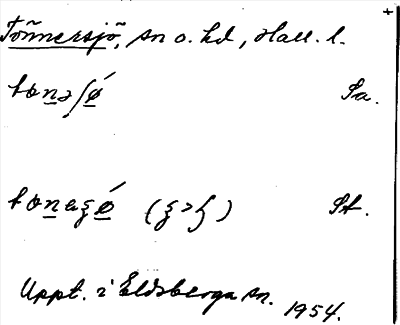 Tönnersjö, sn o. hd, Hall. l. +
tɷnəʃǿ Sa.
tɷnaꞩǿ ( > ) St.
Uppt. i Eldsberga sn. 1954.